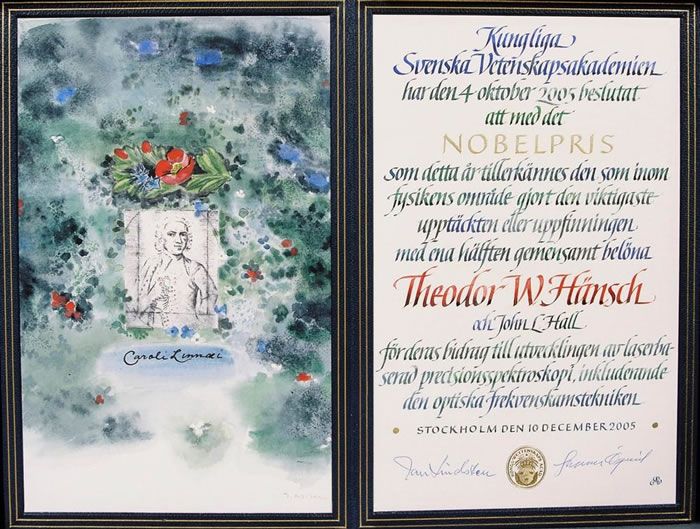 Caroli Linnæi
Kungliga
Svenska Vetenskapsakademien
har den 4 oktober 2005 beslutat
att med det
NOBELPRIS
som detta år tillerkännes den som inom
fysikens område gjort den viktigaste
upptäckten eller uppfinningen
med ena hälften gemensamt belöna
Theodor W. Hänsch
och John L. Hall
för deras bidrag till utvecklingen av laserba-
serad precisionsspektroskopi, inkluderande
den optiska frekvenskamstekniken
STOCKHOLM DEN 10 DECEMBER 2005
Jan Lindsten